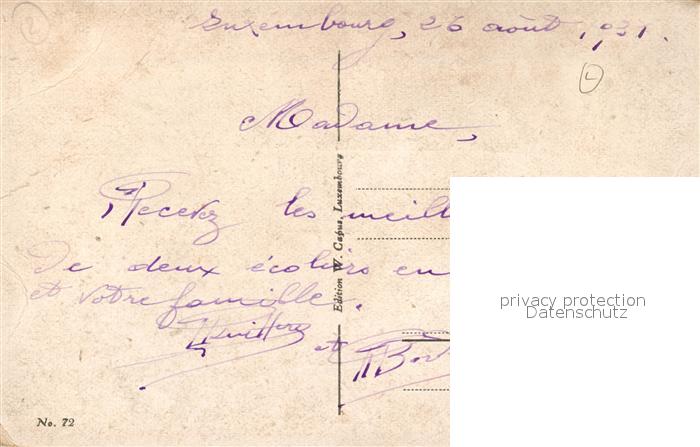 2
Luxembourg, 26 août 1931.
L
Madame,
Recevez les meill
De deux écoliers en
et votre famille.
et
Edition W. Capus, Luxembourg
privacy protection
Datenschutz
No. 72